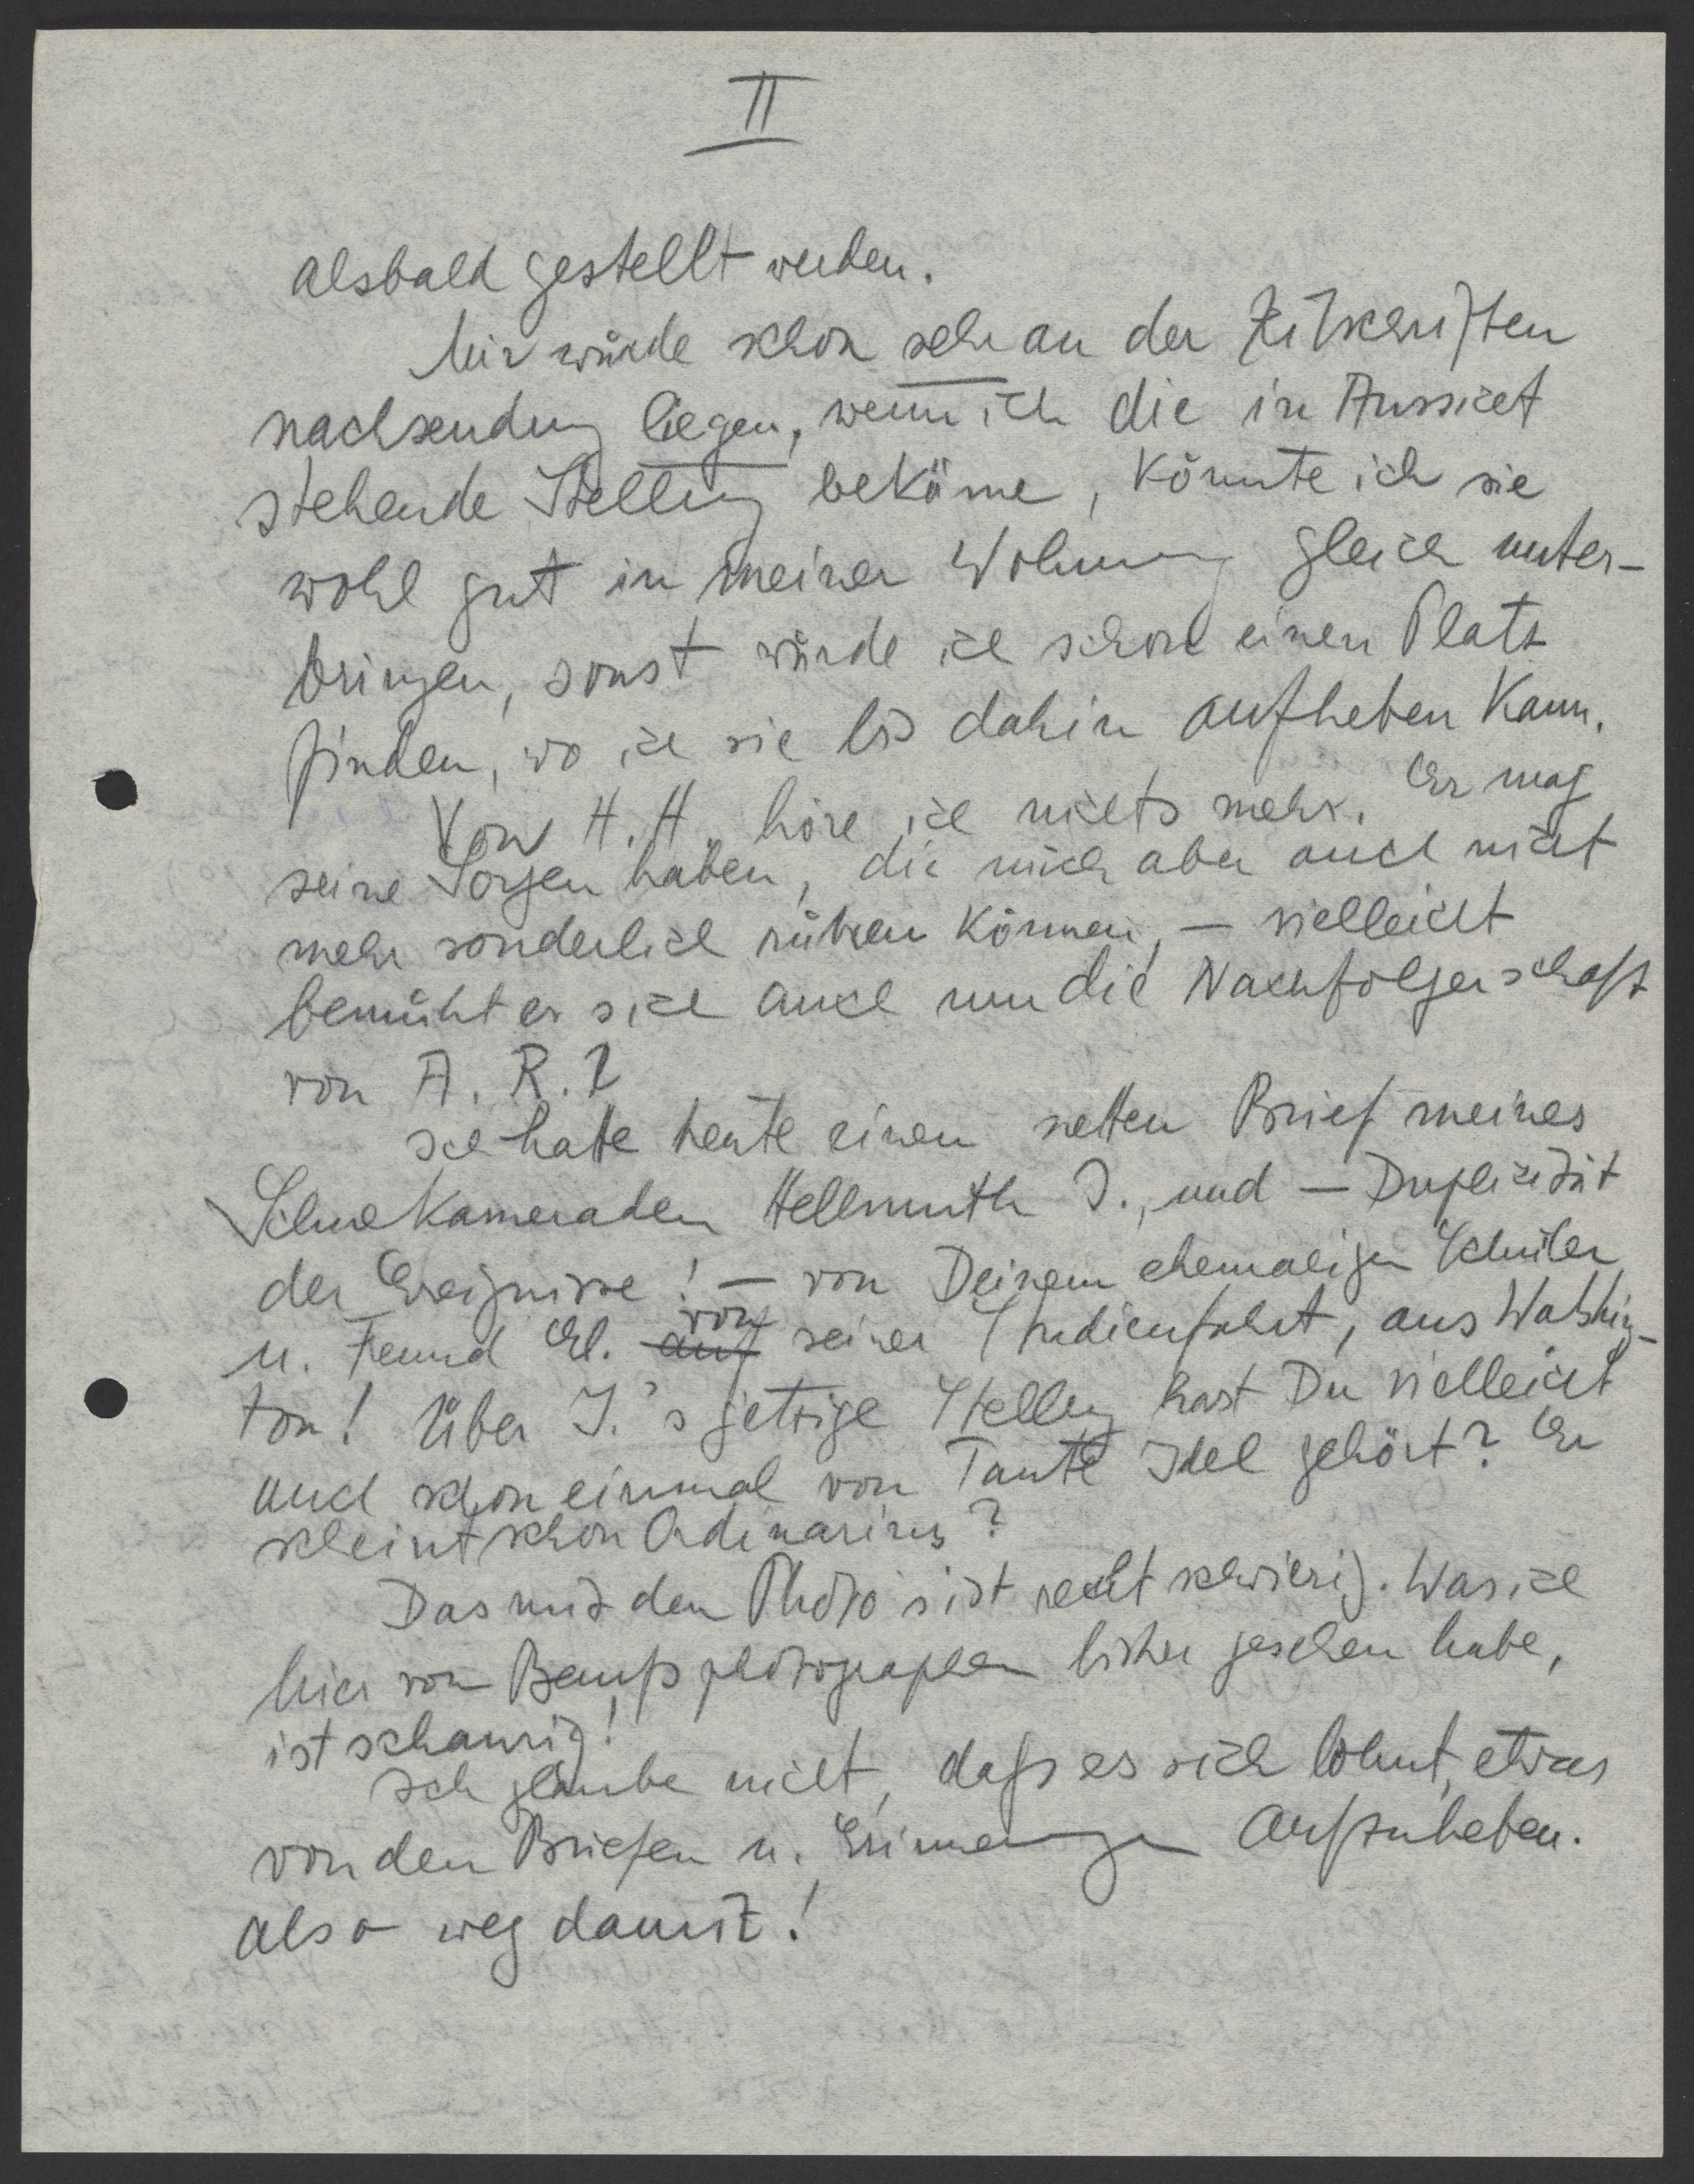 II
alsbald gestellt werden.
Mir würde schon sehr an der Zeitschriften
nachsendung liegen, wenn ich die in Aussicht
stehende Stellung bekäme, könnte ich sie
wohl gut in meiner Wohnung gleich unter-
bringen, sonst würde ich schon einen Platz
finden, wo ich sie bis dahin aufheben kann.
Von H. H. höre ich nichts mehr. Er mag
seine Sorgen haben, die mich aber auch nicht
mehr sonderlich rühren können, — vielleicht
bemüht er sich auch um die Nachfolgerschaft
von A. R.?
Ich hatte heute einen netten Brief meines
Schulkameraden Hellmuth J., und — Duplizität
der Ereignisse! — von Deinem ehemaligen Schüler
u. Freund El. auf von seiner Studienfahrt, aus Washing-
ton! Über J.'s jetzige Stellung hast Du vielleicht
auch schon einmal von Tante Idel gehört? Er
scheint schon Ordinarius?
Das mit den Photo's ist recht schwierig. Was ich
hier von Berufsphotographen bisher gesehen habe,
ist schaurig!
Ich glaube nicht, dass es sich lohnt, etwas
von den Briefen u. Erinnerungen aufzuheben.
also weg damit!